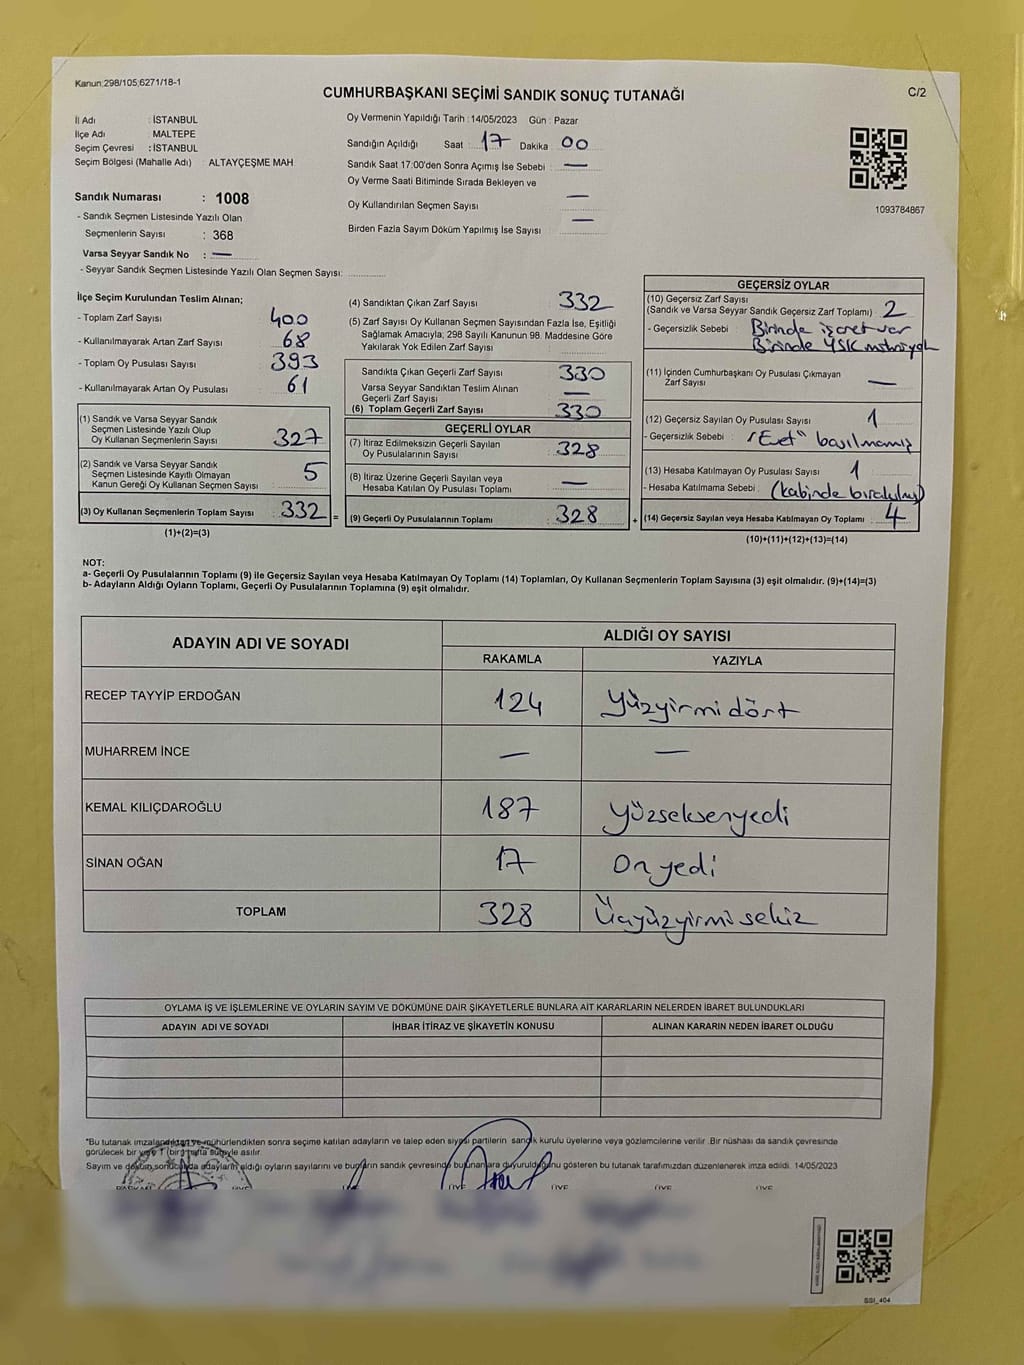 Kanun:298/105,6271/18-1
CUMHURBAŞKANI SEÇİMİ SANDIK SONUÇ TUTANAĞI
C/2
İl Adı : İSTANBUL
İlçe Adı : MALTEPE
Seçim Çevresi : İSTANBUL
Seçim Bölgesi (Mahalle Adı) : ALTAYÇEŞME MAH.
Sandık Numarası : 1008
- Sandık Seçmen Listesinde Yazılı Olan
Seçmenlerin Sayısı : 368
Varsa Seyyar Sandık No : —
- Seyyar Sandık Seçmen Listesinde Yazılı Olan Seçmen Sayısı:
Oy Vermenin Yapıldığı Tarih : 14/05/2023 Gün : Pazar
Sandığın Açıldığı Saat 17 Dakika 00
Sandık Saat 17:00'den Sonra Açımış İse Sebebi —
Oy Verme Saati Bitiminde Sırada Bekleyen ve
Oy Kullandırılan Seçmen Sayısı —
Birden Fazla Sayım Döküm Yapılmış İse Sayısı —
1093784867
İlçe Seçim Kurulundan Teslim Alınan;
- Toplam Zarf Sayısı 400
- Kullanılmayarak Artan Zarf Sayısı 68
- Toplam Oy Pusulası Sayısı 393
- Kullanılmayarak Artan Oy Pusulası 61
(1) Sandık ve Varsa Seyyar Sandık
Seçmen Listesinde Yazılı Olup
Oy Kullanan Seçmenlerin Sayısı 327
(2) Sandık ve Varsa Seyyar Sandık
Seçmen Listesinde Kayıtlı Olmayan
Kanun Gereği Oy Kullanan Seçmen Sayısı 5
(3) Oy Kullanan Seçmenlerin Toplam Sayısı 332 =
(1)+(2)=(3)
(4) Sandıktan Çıkan Zarf Sayısı 332
(5) Zarf Sayısı Oy Kullanan Seçmen Sayısından Fazla İse, Eşitliği
Sağlamak Amacıyla; 298 Sayılı Kanunun 98. Maddesine Göre
Yakılarak Yok Edilen Zarf Sayısı
Sandıkta Çıkan Geçerli Zarf Sayısı 330
Varsa Seyyar Sandıktan Teslim Alınan
Geçerli Zarf Sayısı —
(6) Toplam Geçerli Zarf Sayısı 330
GEÇERLİ OYLAR
(7) İtiraz Edilmeksizin Geçerli Sayılan
Oy Pusulalarının Sayısı : 328
(8) İtiraz Üzerine Geçerli Sayılan veya
Hesaba Katılan Oy Pusulası Toplamı —
(9) Geçerli Oy Pusulalarının Toplamı : 328 +
GEÇERSİZ OYLAR
(10) Geçersiz Zarf Sayısı
(Sandık ve Varsa Seyyar Sandık Geçersiz Zarf Toplamı) 2
- Geçersizlik Sebebi : Birinde işaret var
Birinde YSK
(11) İçinden Cumhurbaşkanı Oy Pusulası Çıkmayan
Zarf Sayısı —
(12) Geçersiz Sayılan Oy Pusulası Sayısı 1
- Geçersizlik Sebebi : "Evet" basılmamış
(13) Hesaba Katılmayan Oy Pusulası Sayısı 1
- Hesaba Katılmama Sebebi : (kabinde bırakılmış)
(14) Geçersiz Sayılan veya Hesaba Katılmayan Oy Toplamı 4
(10)+(11)+(12)+(13)=(14)
NOT:
a- Geçerli Oy Pusulalarının Toplamı (9) ile Geçersiz Sayılan veya Hesaba Katılmayan Oy Toplamı (14) Toplamları, Oy Kullanan Seçmenlerin Toplam Sayısına (3) eşit olmalıdır. (9)+(14)=(3)
b- Adayların Aldığı Oyların Toplamı, Geçerli Oy Pusulalarının Toplamına (9) eşit olmalıdır.
ADAYIN ADI VE SOYADI
ALDIĞI OY SAYISI
RAKAMLA YAZIYLA
RECEP TAYYİP ERDOĞAN 124 Yüzyirmidört
MUHARREM İNCE — —
KEMAL KILIÇDAROĞLU 187 Yüzseksenyedi
SİNAN OĞAN 17 Onyedi
TOPLAM 328 Üçyüzyirmisekiz
OYLAMA İŞ VE İŞLEMLERİNE VE OYLARIN SAYIM VE DÖKÜMÜNE DAİR ŞİKAYETLERLE BUNLARA AİT KARARLARIN NELERDEN İBARET BULUNDUKLARI
ADAYIN ADI VE SOYADI İHBAR İTİRAZ VE ŞİKAYETİN KONUSU ALINAN KARARIN NEDEN İBARET OLDUĞU
"Bu tutanak imzalandıktan ve mühürlendikten sonra seçime katılan adayların ve talep eden siyasi partilerin sandık kurulu üyelerine veya gözlemcilerine verilir .Bir nüshası da sandık çevresinde
görülecek bir yere 1 (bir) hafta süreyle asılır.
Sayım ve döküm sonucunda adayların aldığı oyların sayılarını ve bunların sandık çevresinde bulunanlara duyurulduğunu gösteren bu tutanak tarafımızdan düzenlenerek imza edildi. 14/05/2023
ÜYE ÜYE ÜYE ÜYE ÜYE
SSI_404